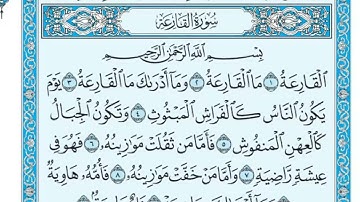 سُورَةُ القَارِعَةِ
بِسْمِ اللَّهِ الرَّحْمَٰنِ الرَّحِيمِ
الْقَارِعَةُ ١ مَا الْقَارِعَةُ ٢ وَمَا أَدْرَىٰكَ مَا الْقَارِعَةُ ٣ يَوْمَ
يَكُونُ النَّاسُ كَالْفَرَاشِ الْمَبْثُوثِ ٤ وَتَكُونُ الْجِبَالُ
كَالْعِهْنِ الْمَنفُوشِ ٥ فَأَمَّا مَن ثَقُلَتْ مَوَازِينُهُۥ ٦ فَهُوَ فِي
عِيشَةٍ رَّاضِيَةٍ ٧ وَأَمَّا مَنْ خَفَّتْ مَوَازِينُهُۥ ٨ فَأُمُّهُۥ هَاوِيَةٌ